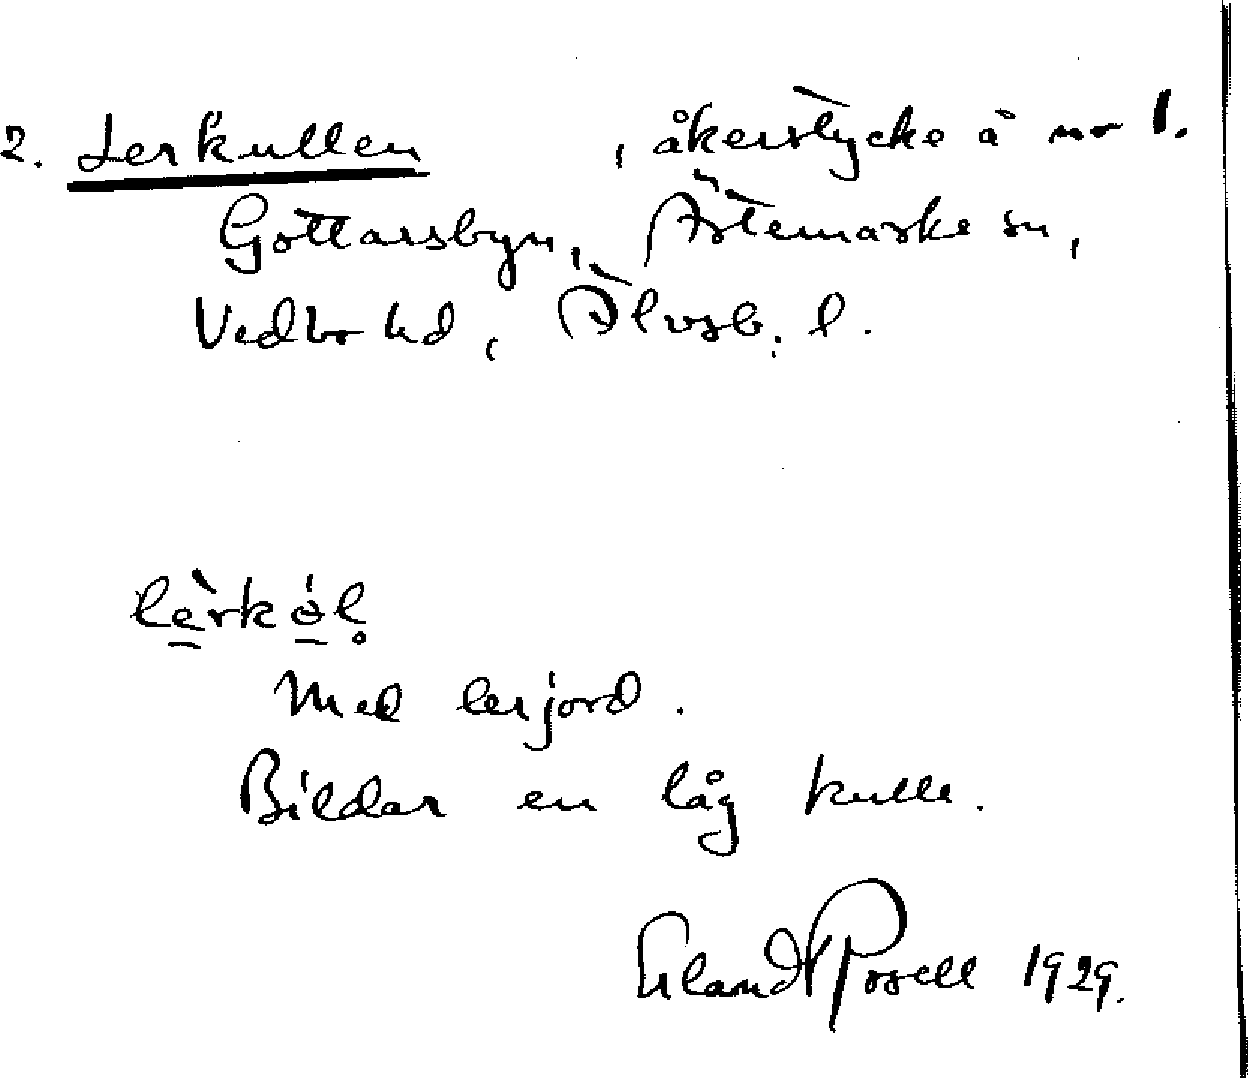 2. Lerkullen , åkerstycke å nr 1.
Gottarsbyn, Ärtemarks sn,
Vedbo hd, Älvsb. l.
lèrkól
Med lerjord.
Bildar en låg kulle.
Erland Rosell 1929.